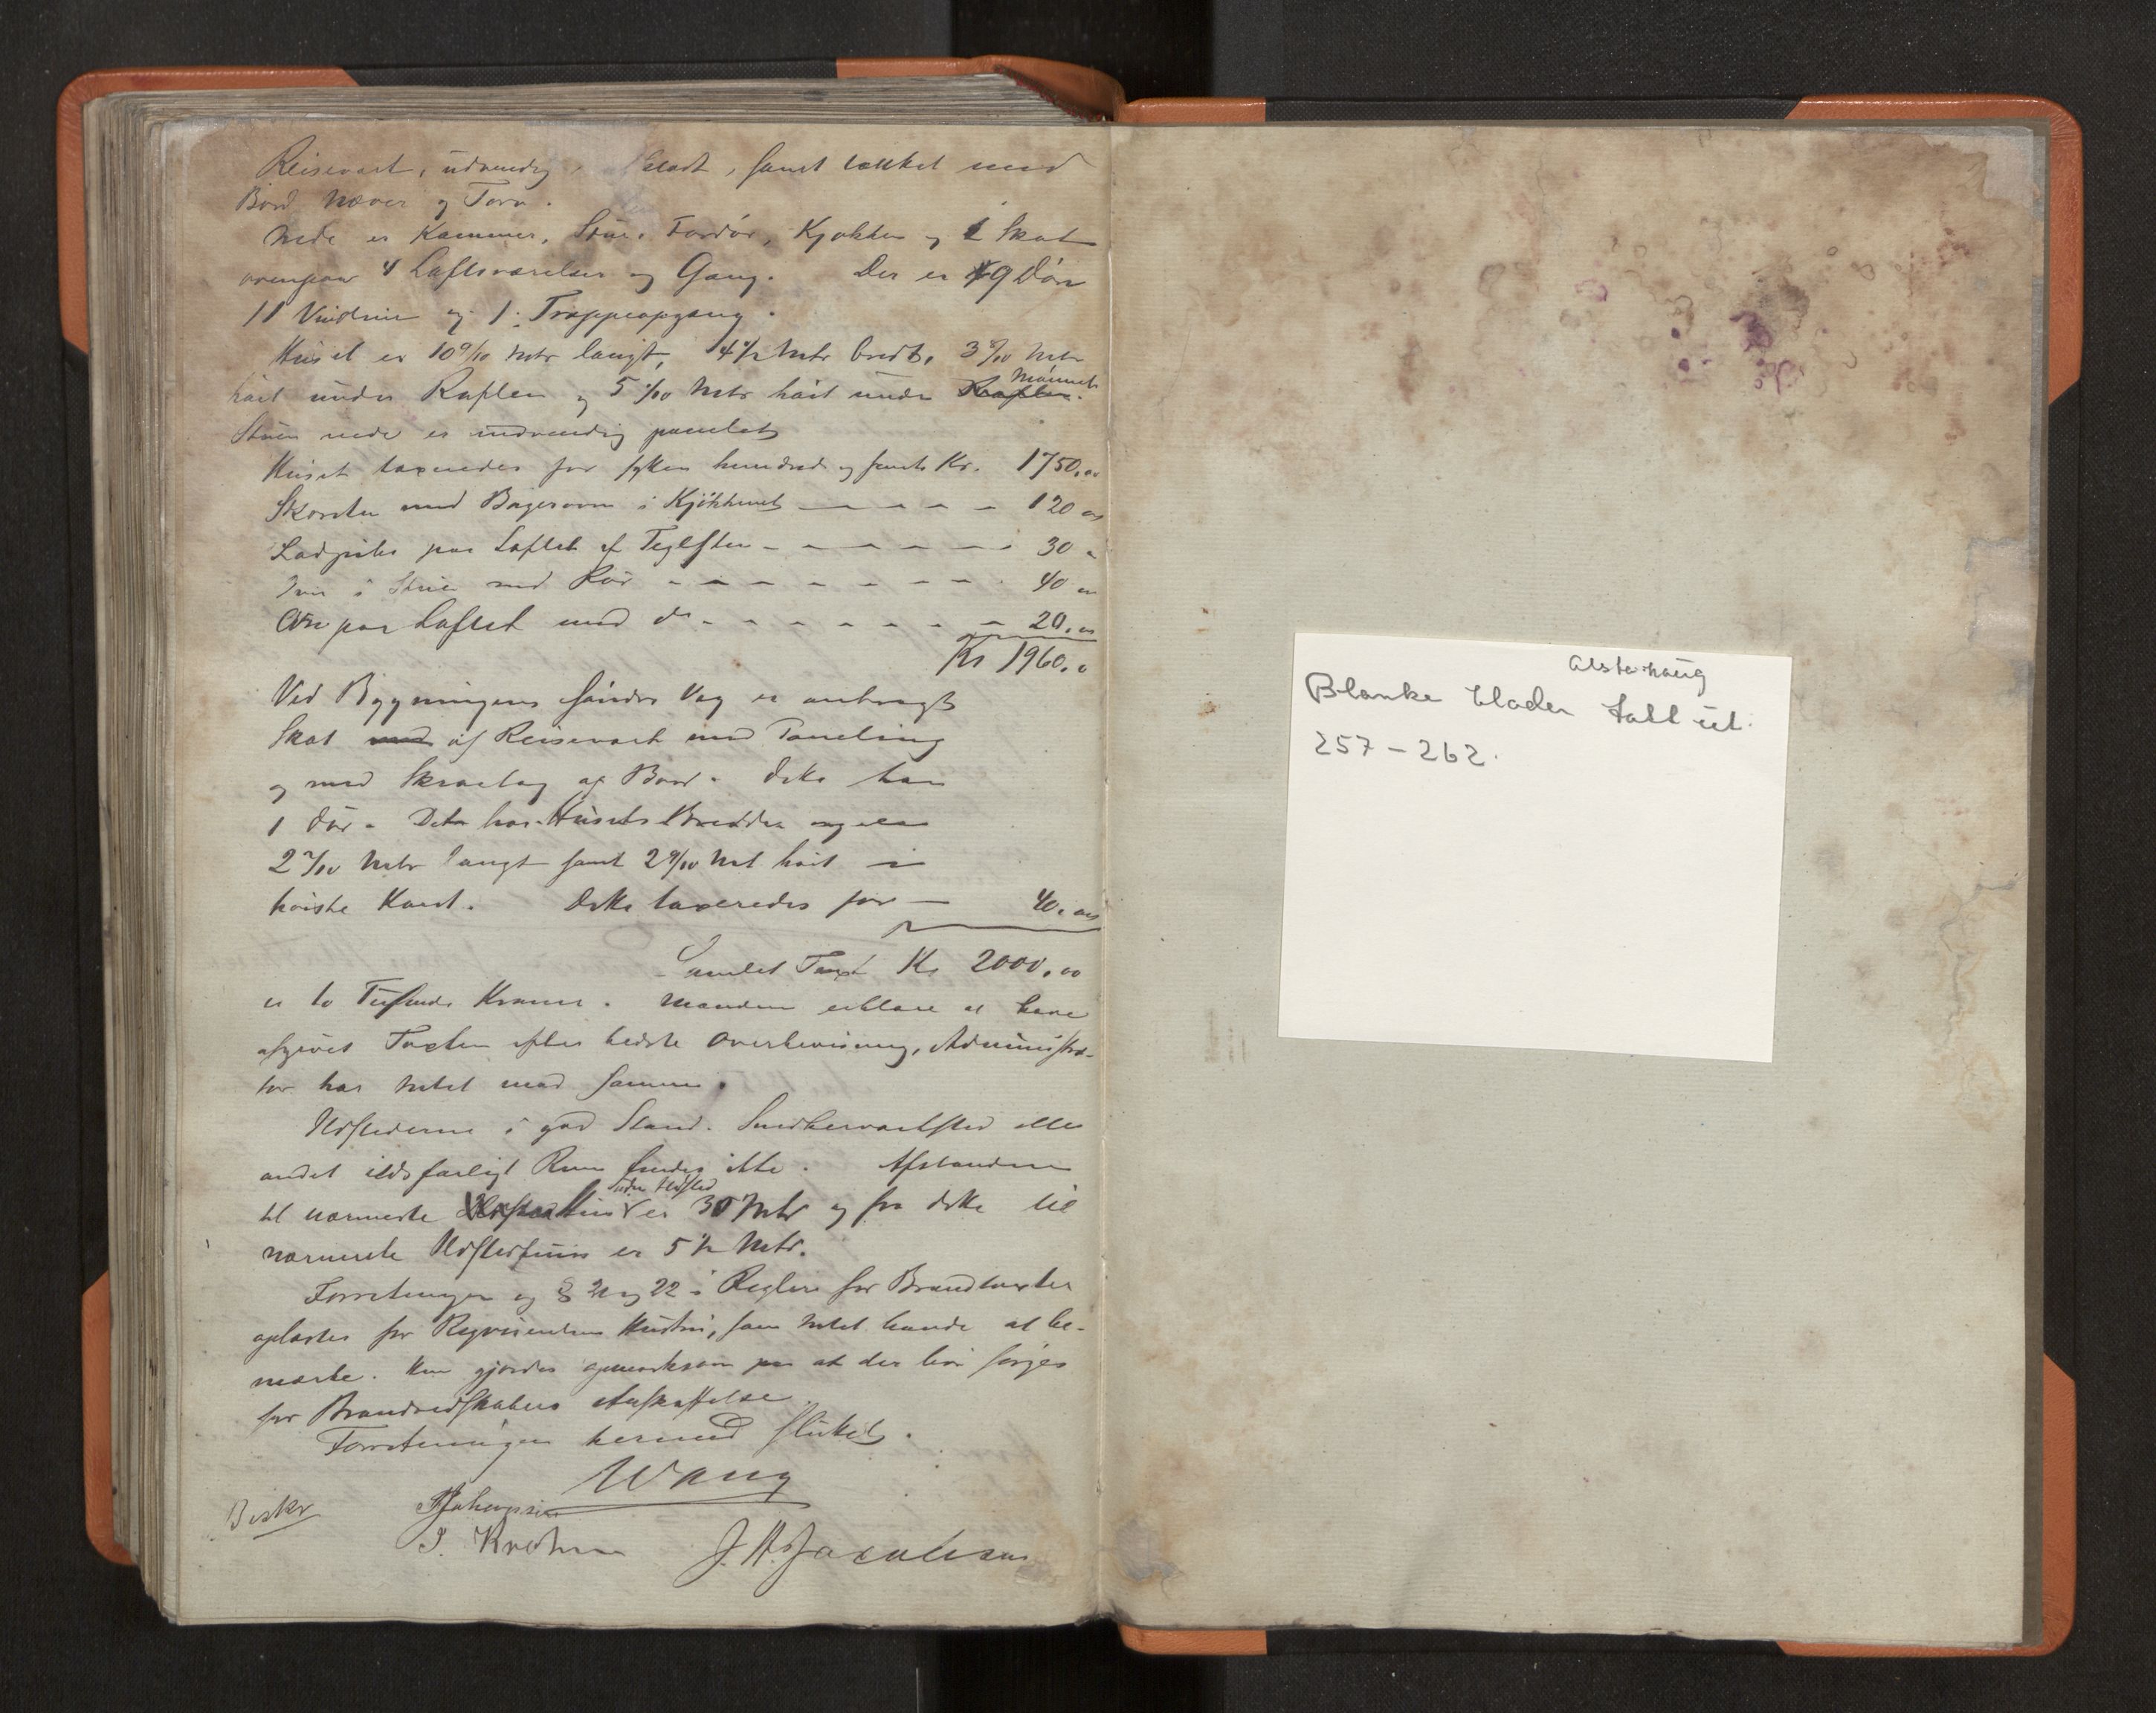 Reisevark, udvendig klædt, samt tækket med
Bord Næver og Torv.
Nede er Kammer, Stue, Fordør, Kjøkken og 1 Skot
ovenpaa 4 Loftsværelser og Gang. Der er 9 Døre
11 Vinduer og 1 Trappeopgang.
Huset er 10 9/10 Mtr langt, 4 1/2 Mtr bredt, 3 Mtr
høit under Raften og 5 1/10 Mtr høit under Raften. Mønnet
Stuen nede er indvendig panelet
Huset taxeredes for sytten hundrede og femti Kr. 1750,00
Skorsten med Bagerovn i Kjøkkenet 120 00
Ladpibe paa Loftet af Teglsten 30 "
Ovn i Stuen med Rør 40 "
Ovn paa Loftet med do 20,00
Kr 1960,0
Ved Bygningens søndre Væg er anbragt
Skot med af Reisevark med Paneling
og med Skraatag af Bord. Dette har
1 Dør. Dette har Husets Bredde og er
2 7/10 Mtr langt samt 2 9/10 Mt høit i
høiste Kant. Dette taxeredes for 40,00
Samlet Taxt Kr 2000,00
er to Tusinde Kroner. Mændene erklære at have
afgivet Taxten efter bedste Overbevisning, Administra-
tor har Intet mod samme.
Ildstederne i god Stand. Snedkerværksted eller
andet ildsfarligt Rum findes ikke. Afstanden
til nærmeste Hus uden Ildsted er 30 Mtr og fra dette til
nærmeste Ildstedhuus er 5 1/2 Mtr.
Forretningen og § 21 og 22 i Reglene for Brandtaxter
oplæstes for Reqvirentens Hustru, som Intet havde at be-
mærke. Hun gjordes opmærksom paa at der bør sørges
for Brandredskabers Anskaffelse.
Forretningen hermed sluttet.
Wang
Beskr
PJohansen
P. Krohn J. H. Jacobsen
Alstahaug
Blanke blader tatt ut.
257 - 262.